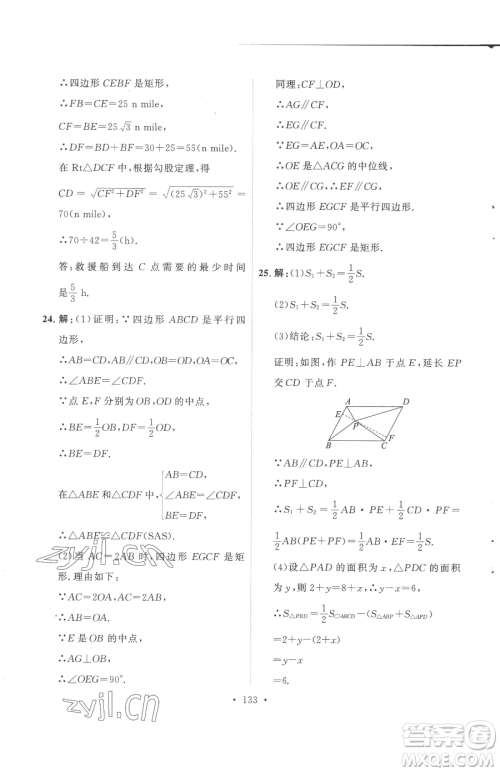 ∴四边形 CEBF 是矩形,
∴FB=CE=25 n mile,
CF=BE=25√3 n mile,
∴DF=BD+BF=30+25=55(n mile).
在 Rt△DCF 中,根据勾股定理,得
CD=√(CF²+DF²)=√((25√3)²+55²)=
70(n mile)
∴70÷42=5/3(h).
答:救援船到达 C 点需要的最少时间
是5/3 h.
24. 解:(1)证明:∵四边形 ABCD 是平行四
边形,
∴AB=CD,AB∥CD,OB=OD,
∴∠ABE=∠CDF.
∵点 E,F 分别为 OB,OD 的中点,
∴BE=1/2OB,DF=1/2OD,
∴BE=DF.
在△ABE 和△CDF 中,{AB=CD,
∠ABE=∠CDF,
BE=DF,
∴△ABE≌△CDF(SAS).
(2)当 AC=2AB 时,四边形 EGCF 是矩
形.理由如下:
∵AC=2OA,AC=2AB,
∴AB=OA.
∵E 是 OB 的中点,
∴AG⊥OB,
∴∠OEG=90°.
同理:CF⊥OD,
∴AG∥CF,
∴EG∥CF.
∵EG=AE,OA=OC,
∴OE是△ACG 的中位线,
∴OE∥CG,∴EF∥CG,
∴四边形 EGCF 是平行四边形.
∵∠OEG=90°,
∴四边形 EGCF 是矩形.
25. 解:(1)S₁+S₂=1/2S.
(2)S₁+S₂=1/2S.
(3)结论:S₁+S₂=1/2S.
证明:如图,作 PE⊥AB 于点 E,延长 EP
交 CD 于点 F.
A
D
E
P
F
B
C
∵AB∥CD,PE⊥AB,
∴PF⊥CD.
∴S₁+S₂=1/2AB·PE+1/2CD·PF=
1/2AB(PE+PF)=1/2AB·EF=1/2S.
(4)设△PAD 的面积为 x,△PDC 的面积
为 y,则 2+y=8+x,∴y-x=6.
∴S△PBD=1/2S▱ABCD-(S△ABP+S△APD)
=2+y-(2+x)
=y-x
=6.
· 133 ·
zyjl.cn
zyjl.cn
答案圈
MXQE.COM